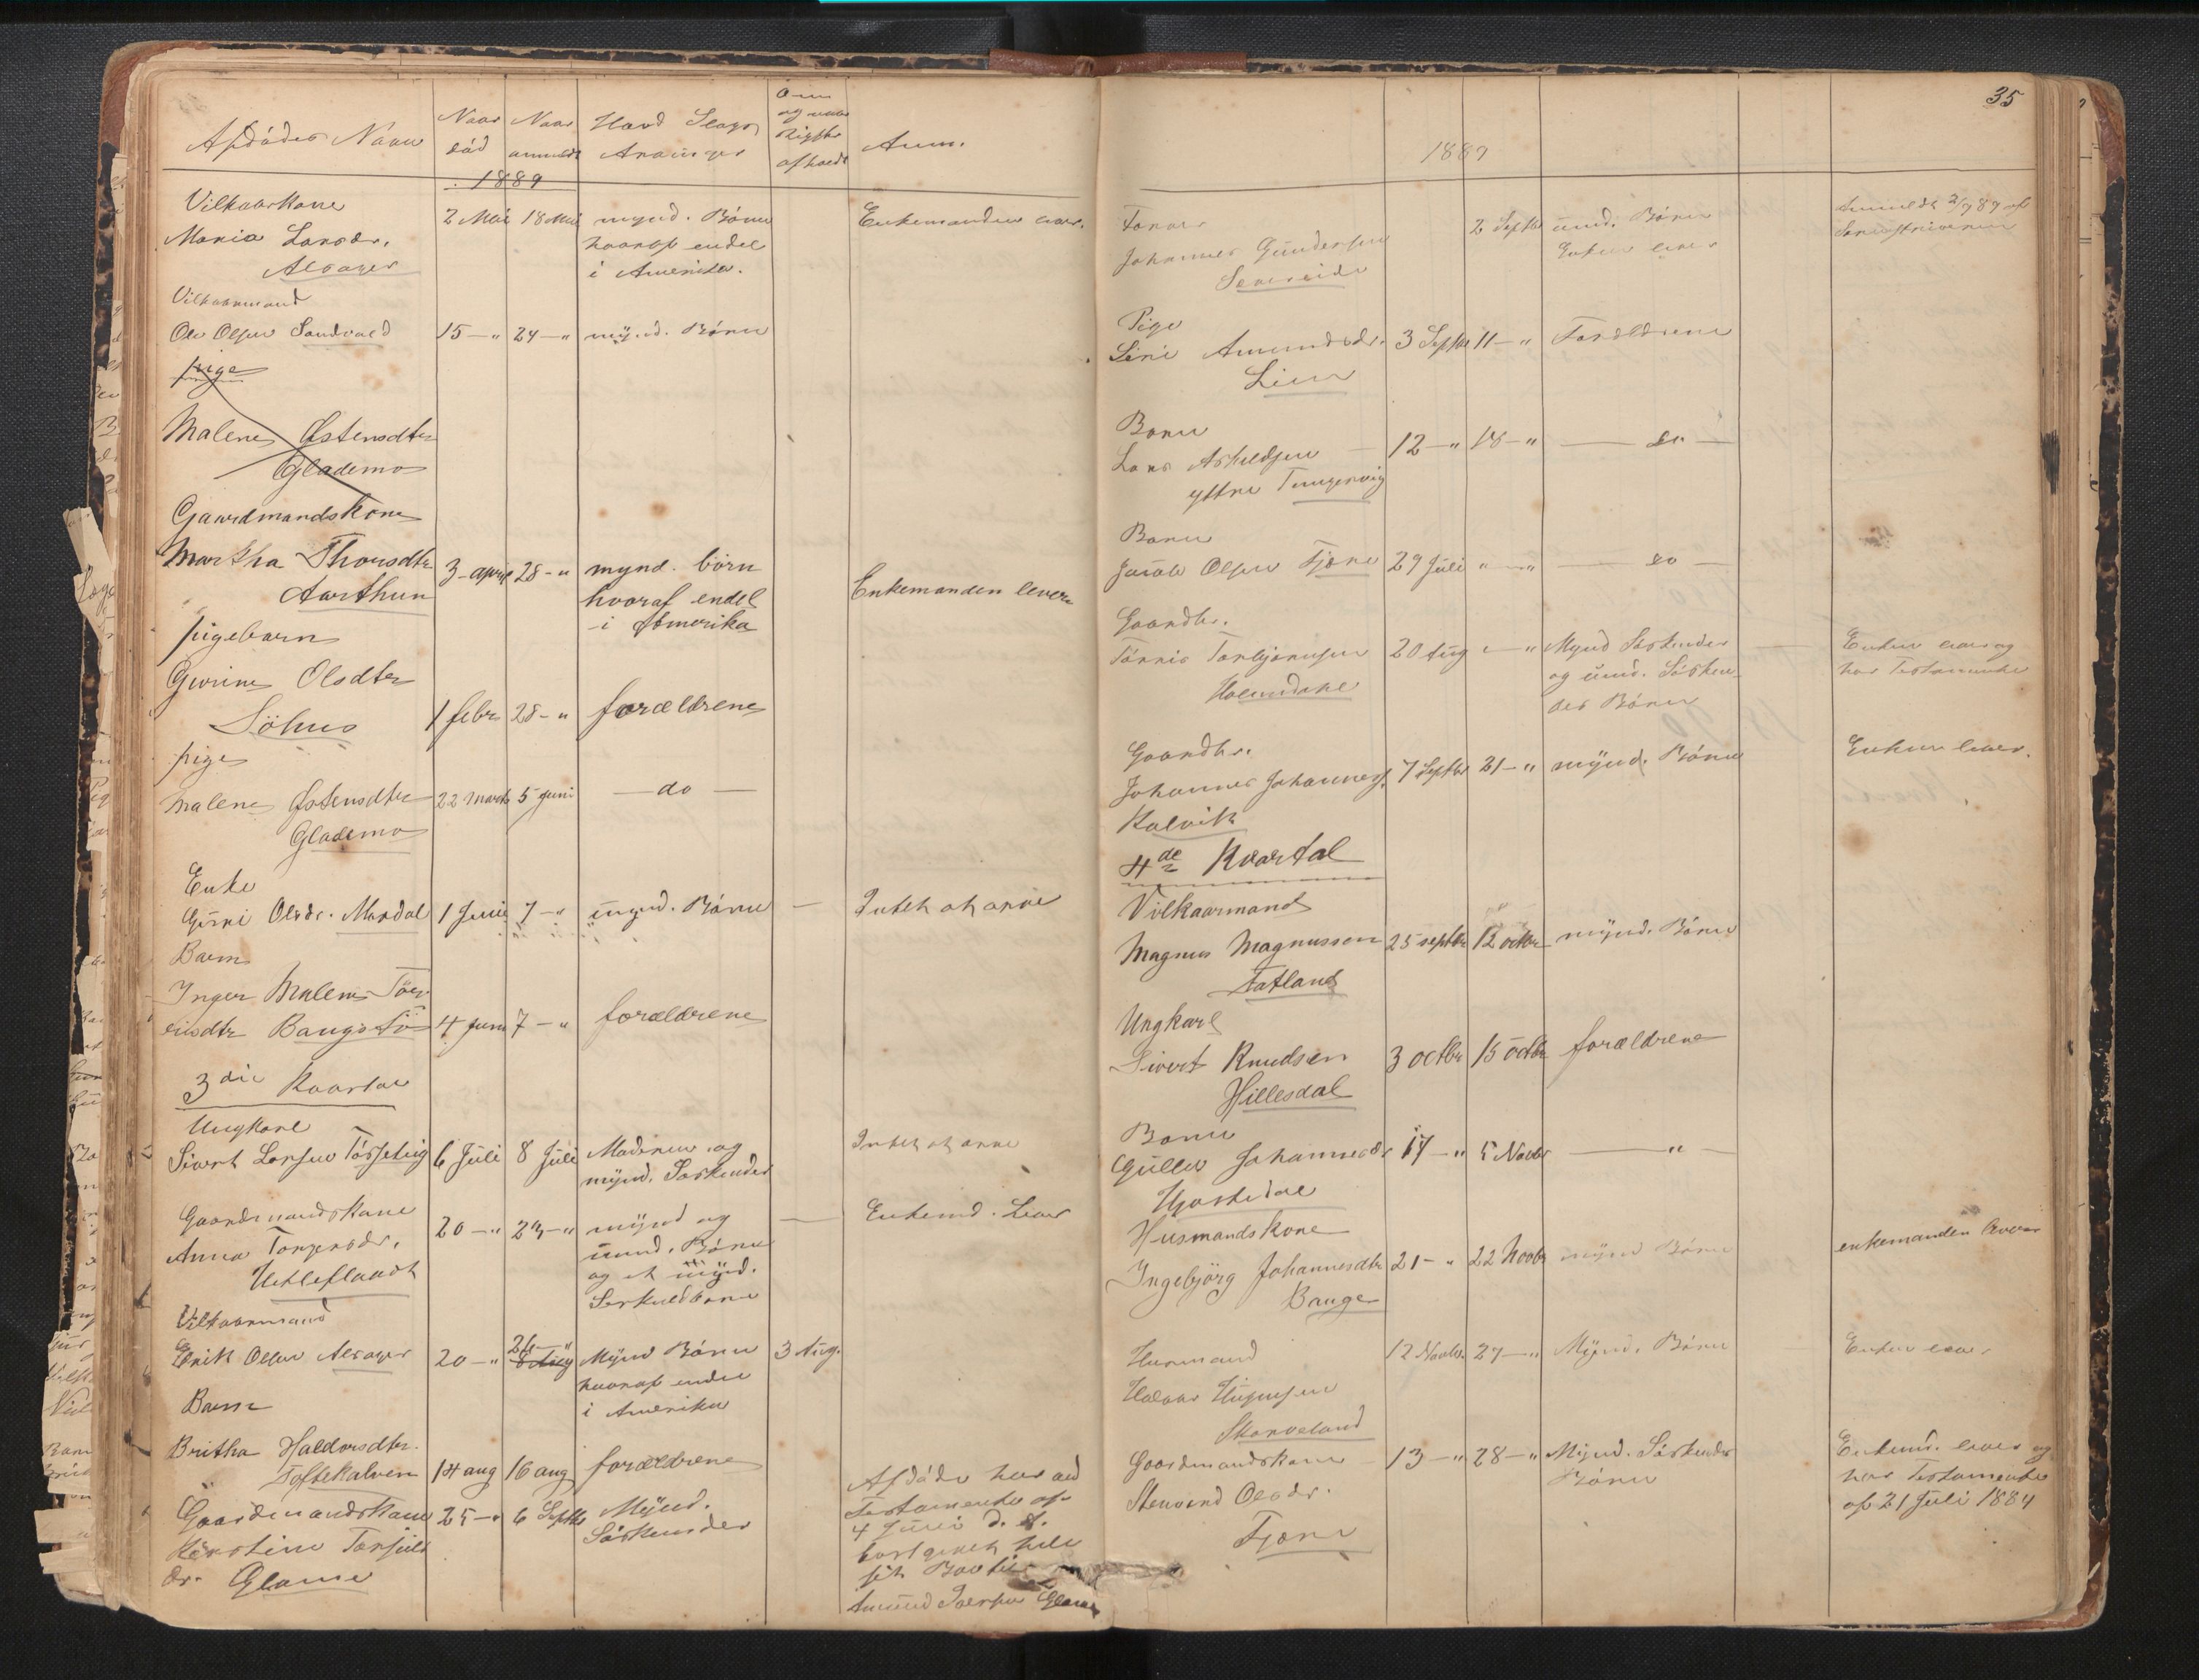 Afdødes Navn
Naar død
Naar anmeldt
Hvad Slags Arvinger
Om og naar Skifte afholdt
Anm.
1889
Vilkaarskone
Maria Larsdr.
Alsager
2 Mai
18 Mai
mynd. Børn
hvoraf endel
i Amerika.
Enkemanden lever.
Vilkaarmand
Ole Olsen Sandvold
15 — "
24 — "
mynd. Børn
pige
Malene Østensdtr
Glademo
Gaardmandskone
Martha Thorsdtr
Aarthun
3 april
28 - "
mynd. børn
hvoraf endel
i Amerika
Enkemanden lever
pigebarn
Gurine Olsdter
Söhus
1 febr
28 - "
forældrene
pige
Malene Østensdtr
Glademo
22 marts
5 juni
— do —
Enke
Guni Olsdr. Mardal
1 Juni
7 — "
mynd. Børn
—
Intet at arve
Barn
Inger Malene Tör-
risdtr Baugstø
4 juni
7 — "
forældrene
3die Kvartal
Ungkarl
Sivert Larsen
6 Juli
8 Juli
Moderen og
mynd. Søskende
Intet at arve
Gaardmandskone
Anna Torgersdr.
20 — "
23 — "
mynd og
umd. Børn
og et mynd.
—
Enkemd. Lever
Vilkaarmand
Erik Olsen Alsager
20 — "
26 — "
8 Aug
Mynd Børn
hvoraf endel
i Amerika
3 Aug.
Barn
Britha Haldorsdtr.
Toftekalven
14 aug
16 aug
forældrene
Gaardmandskone
Kirstine
dr. Glame
25 — "
6 Septbr
Mynd.
Søskende
Afdøde har ved
Testamente af
4 Juni d. A.
bortgivet hele
sit Bo til
Amund Glame
35
1889
Johannes Gundersen
2 Septbr
umd. Børn
Enken lever
Anmeldt 2/9 89 af
Pige
Siri Amundsdr.
Lien
3 Septbr
11 — "
Forældrene
Barn
Lars Askildsen
yttre Tungesvig
12 — "
18 — "
— do —
Barn
Jacob Olsen Fjære
29 Juli
" — "
— do —
Gaardbr.
Tønnes Torbjørnsen
20 Aug
" — "
Mynd Søskende
og umd. Søsken-
des Børn
—
Enken lever og
har Testamente
Gaardbr.
Johannes Johannes.
Kalvik
7 Septbr
21 — "
mynd. Børn
Enken lever.
4de Kvartal
Vilkaarmand
Magnus Magnussen
Fatland
25 septbr
12 octbr
mynd. Børn
Ungkarl
Sivert Knudsen
Hillesdal
3 octbr
15 octbr
forældrene
Barn
Johannesdr
17 — "
5 Novbr
— " —
Husmandskone
Ingebjörg Johannesdtr
Bauge
21 — "
22 Novbr
mynd Børn
enkemanden lever
Husmand
Skarveland
12 Novbr.
27 — "
Mynd. Børn
Enken lever
Gaardmandskone
Olsdr.
Fjære
13 — "
28 — "
Mynd. Søskendes
Børn
Enkemd. lever og
har Testamente
af 21 Juli 1884